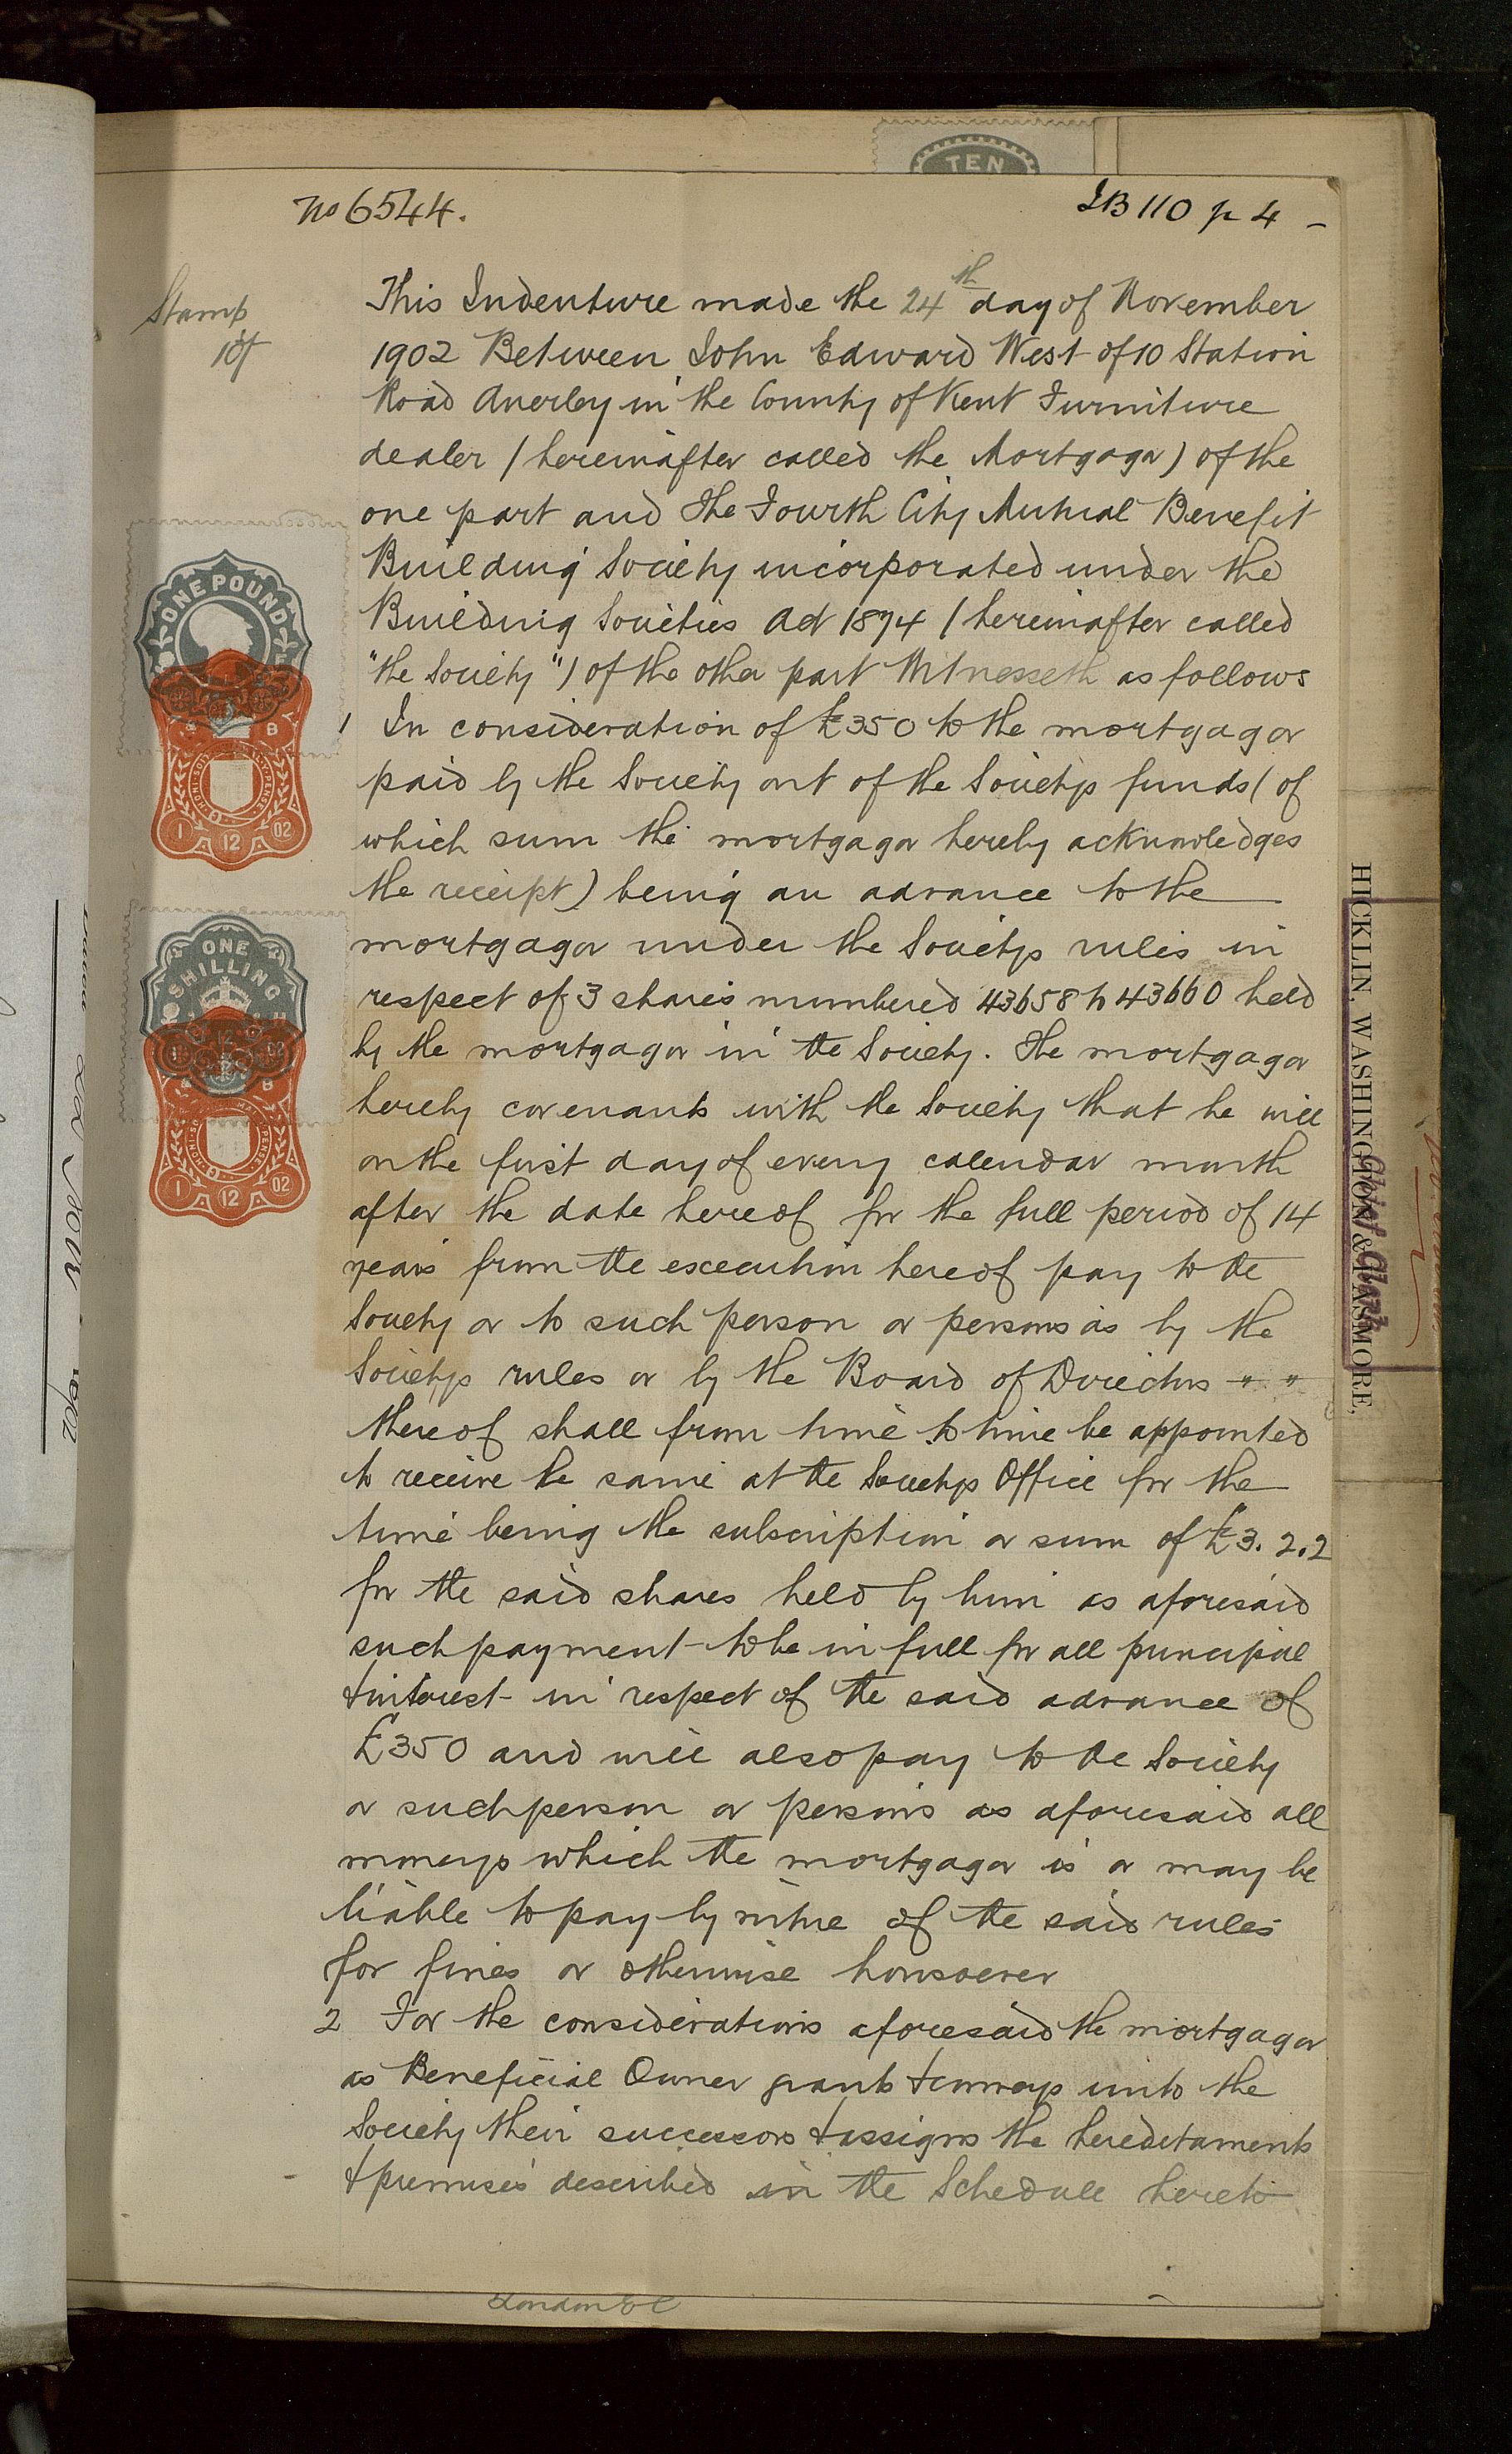 TEN
No 6544.
IB 110 p 4 -
Stamp
10/
This Indenture made the 24th day of November
1902 Between John Edward West of 10 Station
Road Anerley in the County of Kent Furniture
dealer (hereinafter called the Mortgagor) of the
one part and The Fourth City Mutual Benefit
Building Society incorporated under the
Building Societies Act 1874 (hereinafter called
"the Society") of the other part Witnesseth as follows
1 In consideration of £350 to the mortgagor
paid by the Society out of the Societys funds (of
which sum the mortgagor hereby acknowledges
the receipt) being an advance to the
mortgagor under the Societys rules in
respect of 3 shares numbered 43658 to 43660 held
by the mortgagor in the Society. The mortgagor
hereby covenants with the Society that he will
on the first day of every calendar month
after the date hereof for the full period of 14
years from the execution hereof pay to the
Society or to such person or persons as by the
Societys rules or by the Board of Directors " "
thereof shall from time to time be appointed
to receive the same at the Societys Office for the
time being the subscription or sum of £3. 2. 2
for the said shares held by him as aforesaid
such payment to be in full for all principal
& interest in respect of the said advance of
£350 and will also pay to the Society
or such person or persons as aforesaid all
moneys which the mortgagor is or may be
liable to pay by virtue of the said rules
for fines or otherwise howsoever
2 For the considerations aforesaid the mortgagor
as Beneficial Owner grants & conveys unto the
Society their successors & assigns the hereditaments
& premises described in the Schedule hereto
London E C
ONE POUND
B
1 12 02
ONE
SHILLING
12
B
1 12 02
HICKLIN, WASHINGTON & PASMORE,
Chief Clerk
1902